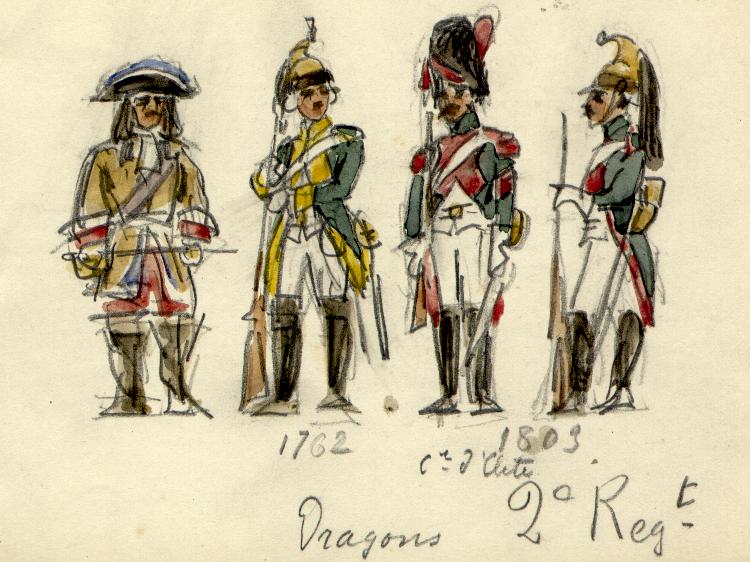 1762
1803
Cie d'Elite
Dragons 2e Regt